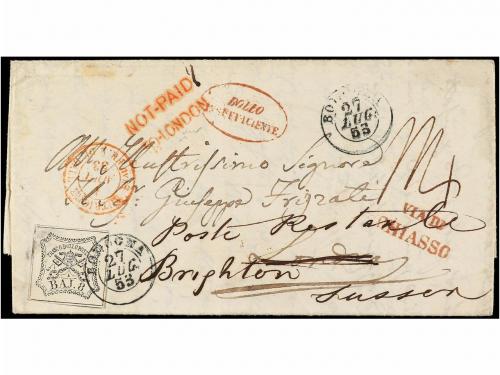 NOT-PAID
LONDON
BOLLO
INSUFFICIENTE
BOLOGNA
27
LUG
53
All' Illustrissimo Signore
Giuseppe Frizzati
VIA DI
CHIASSO
Poste Restante
Brighton
Sussex
BOLOGNA
27
LUG
53
BAJ. 8